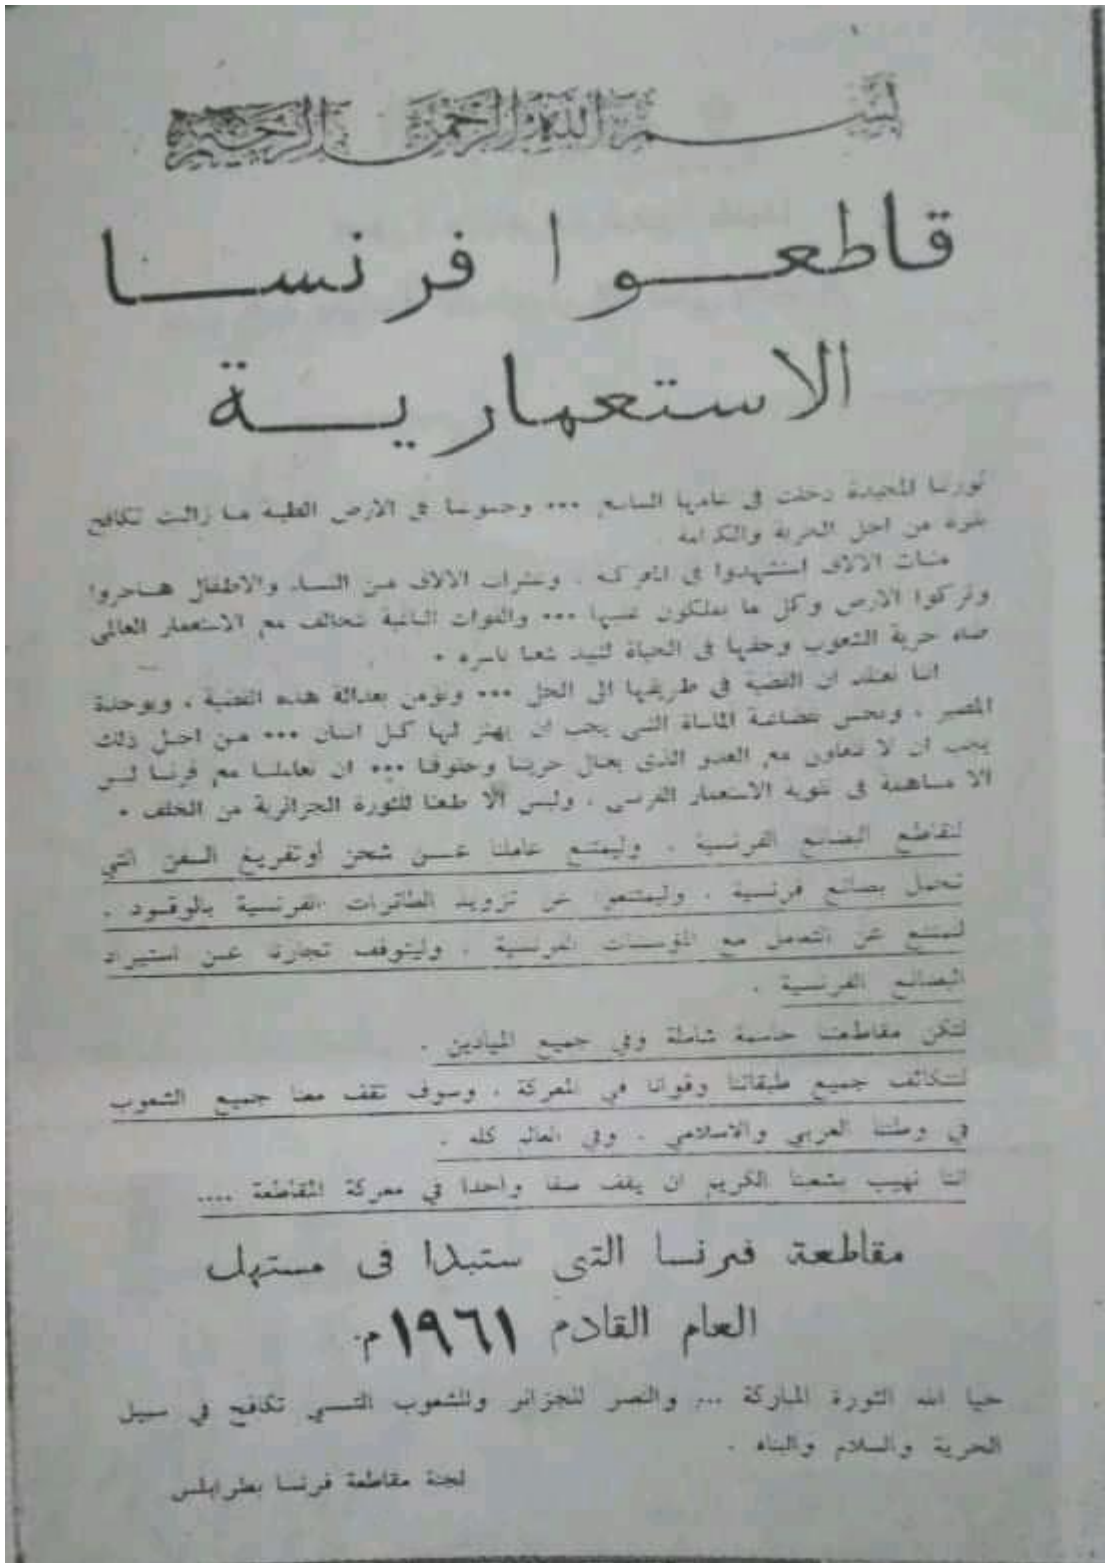 بسم الله الرحمن الرحيم
قاطعوا فرنسا
الاستعمارية
ثورتنا المجيدة دخلت في عامها السابع ... وجيوشنا على الارض الطيبة ما زالت تكافح
بقوة من اجل الحرية والكرامة
مئات الالاف استشهدوا في المعركة . وعشرات الالاف من النساء والاطفال هاجروا
وتركوا الارض وكل ما يملكون عليها ... والقوات الباغية تتحالف مع الاستعمار العالمي
ضد حرية الشعوب وحقها في الحياة لتبيد شعبا باسره .
اننا نعتقد ان القضية في طريقها الى الحل ... ونؤمن بعدالة هذه القضية ، وبوحدة
المصير . ونحس بفضاعة المأساة التي يجب ان يهتز لها كل انسان ... من اجل ذلك
يجب ان لا نتعاون مع العدو الذي حريتنا وحقوقنا ... ان تعاملنا مع فرنسا ليس
الا مساهمة في تقوية الاستعمار الفرنسي ، وليس الا طعنا للثورة الجزائرية من الخلف .
لنقاطع البضائع الفرنسية . وليمتنع عاملنا عن شحن أوتفريغ السفن التي
تحمل بضائع فرنسية . وليمتنعوا عن تزويد الطائرات الفرنسية بالوقود .
لنمتنع عن التعامل مع المؤسسات الفرنسية . وليتوقف تجارنا عن استيراد
البضائع الفرنسية .
لتكن مقاطعتنا حاسمة شاملة وفي جميع الميادين .
لتتكاتف جميع طبقاتنا وقوانا في المعركة . وسوف تقف معنا جميع الشعوب
في وطننا العربي والاسلامي . وفي العالم كله .
اننا نهيب بشعبنا الكريم ان يقف صفا واحدا في معركة المقاطعة ....
مقاطعة فرنسا التى ستبدا فى مستهل
العام القادم ١٩٦١م.
حيا الله الثورة المباركة ... والنصر للجزائر وللشعوب التي تكافح في سبيل
الحرية والسلام والبناء .
لجنة مقاطعة فرنسا بطرابلس